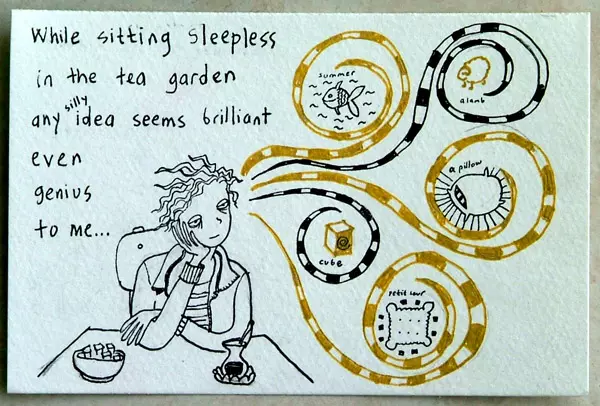 While sitting Sleepless
in the tea garden
any silly idea seems brilliant
even
genius
to me...
summer
a lamb
a pillow
cube
petit four